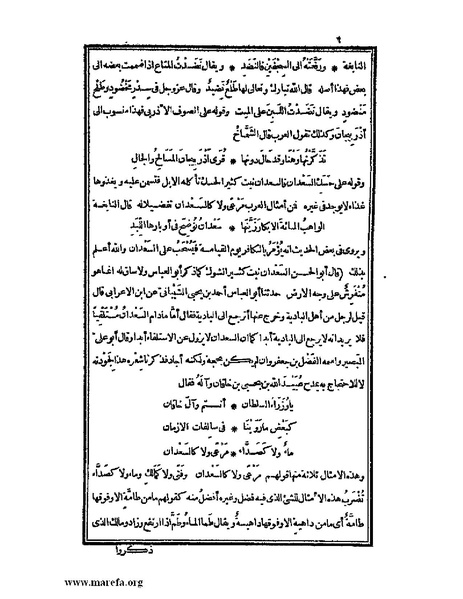 ٦
النابغة * ورفّعته الى السجفين فالنضد * ويقال نضدت المتاع اذا ضممت بعضه الى
بعض فهذا أصله قال الله تبارك وتعالى لها طلع نضيد وقال عزوجل فى سدر مخضود وطلح
منضود ويقال نضدت اللبن على الميت وقوله على الصوف الاذربى فهذا منسوب الى
أذربيجان وكذلك تقول العرب قال الشماخ
تذكرتها وهنا وقد حال دونها * قرى أذربيجان المسالح والجال
وقوله على حسك السعدان فالسعدان نبت كثير الحسك تأكله الابل فتسمن عليه ويغذوها
غذاء لا يوجد فى غيره فمن أمثال العرب مرعى ولا كالسعدان تفضيلا له قال النابغة
الواهب المائة الابكار زينها * سعدان توضح فى أوبارها اللبد
ويروى فى بعض الحديث انه يؤمر بالكافر يوم القيامة فيسحب على السعدان والله أعلم
بذلك (قال أبو الحسن السعدان نبت كثير الشوك كما ذكر أبو العباس ولا ساق له انما هو
منفرش على وجه الارض حدثنا أبو العباس أحمد بن يحيى الشيبانى عن ابن الاعرابى قال
قيل لرجل من أهل البادية وخرج عنها أترجع الى البادية فقال أما ما دام السعدان مستلقيا
فلا يريد انه لا يرجع الى البادية أبدا كما ان السعدان لا يزول عن الاستلقاء أبدا وقال أبو على
البصير واسمه الفضل بن جعفر وان لم يكن بحجة ولكنه أجاد فذكرنا شعره هذا لجودته
لا للاحتجاج به يمدح عبيد الله بن يحيى بن خاقان وآله فقال
يا وزراء السلطان * أنتم وآل خاقان
كبعض ما روينا * فى سالفات الازمان
ماء ولا كصداء * مرعى ولا كالسعدان
وهذه الامثال ثلاثة منها قولهم مرعى ولا كالسعدان وفتى ولا كمالك وماء ولا كصداء
تضرب هذه الامثال للشئ الذى فيه فضل وغيره أفضل منه كقولهم ما من طامة الا وفوقها
طامة أى ما من داهية الا وفوقها داهية ويقال طما الماء وطم اذا ارتفع وزاد ومالك الذى
ذكروا
www.marefa.org